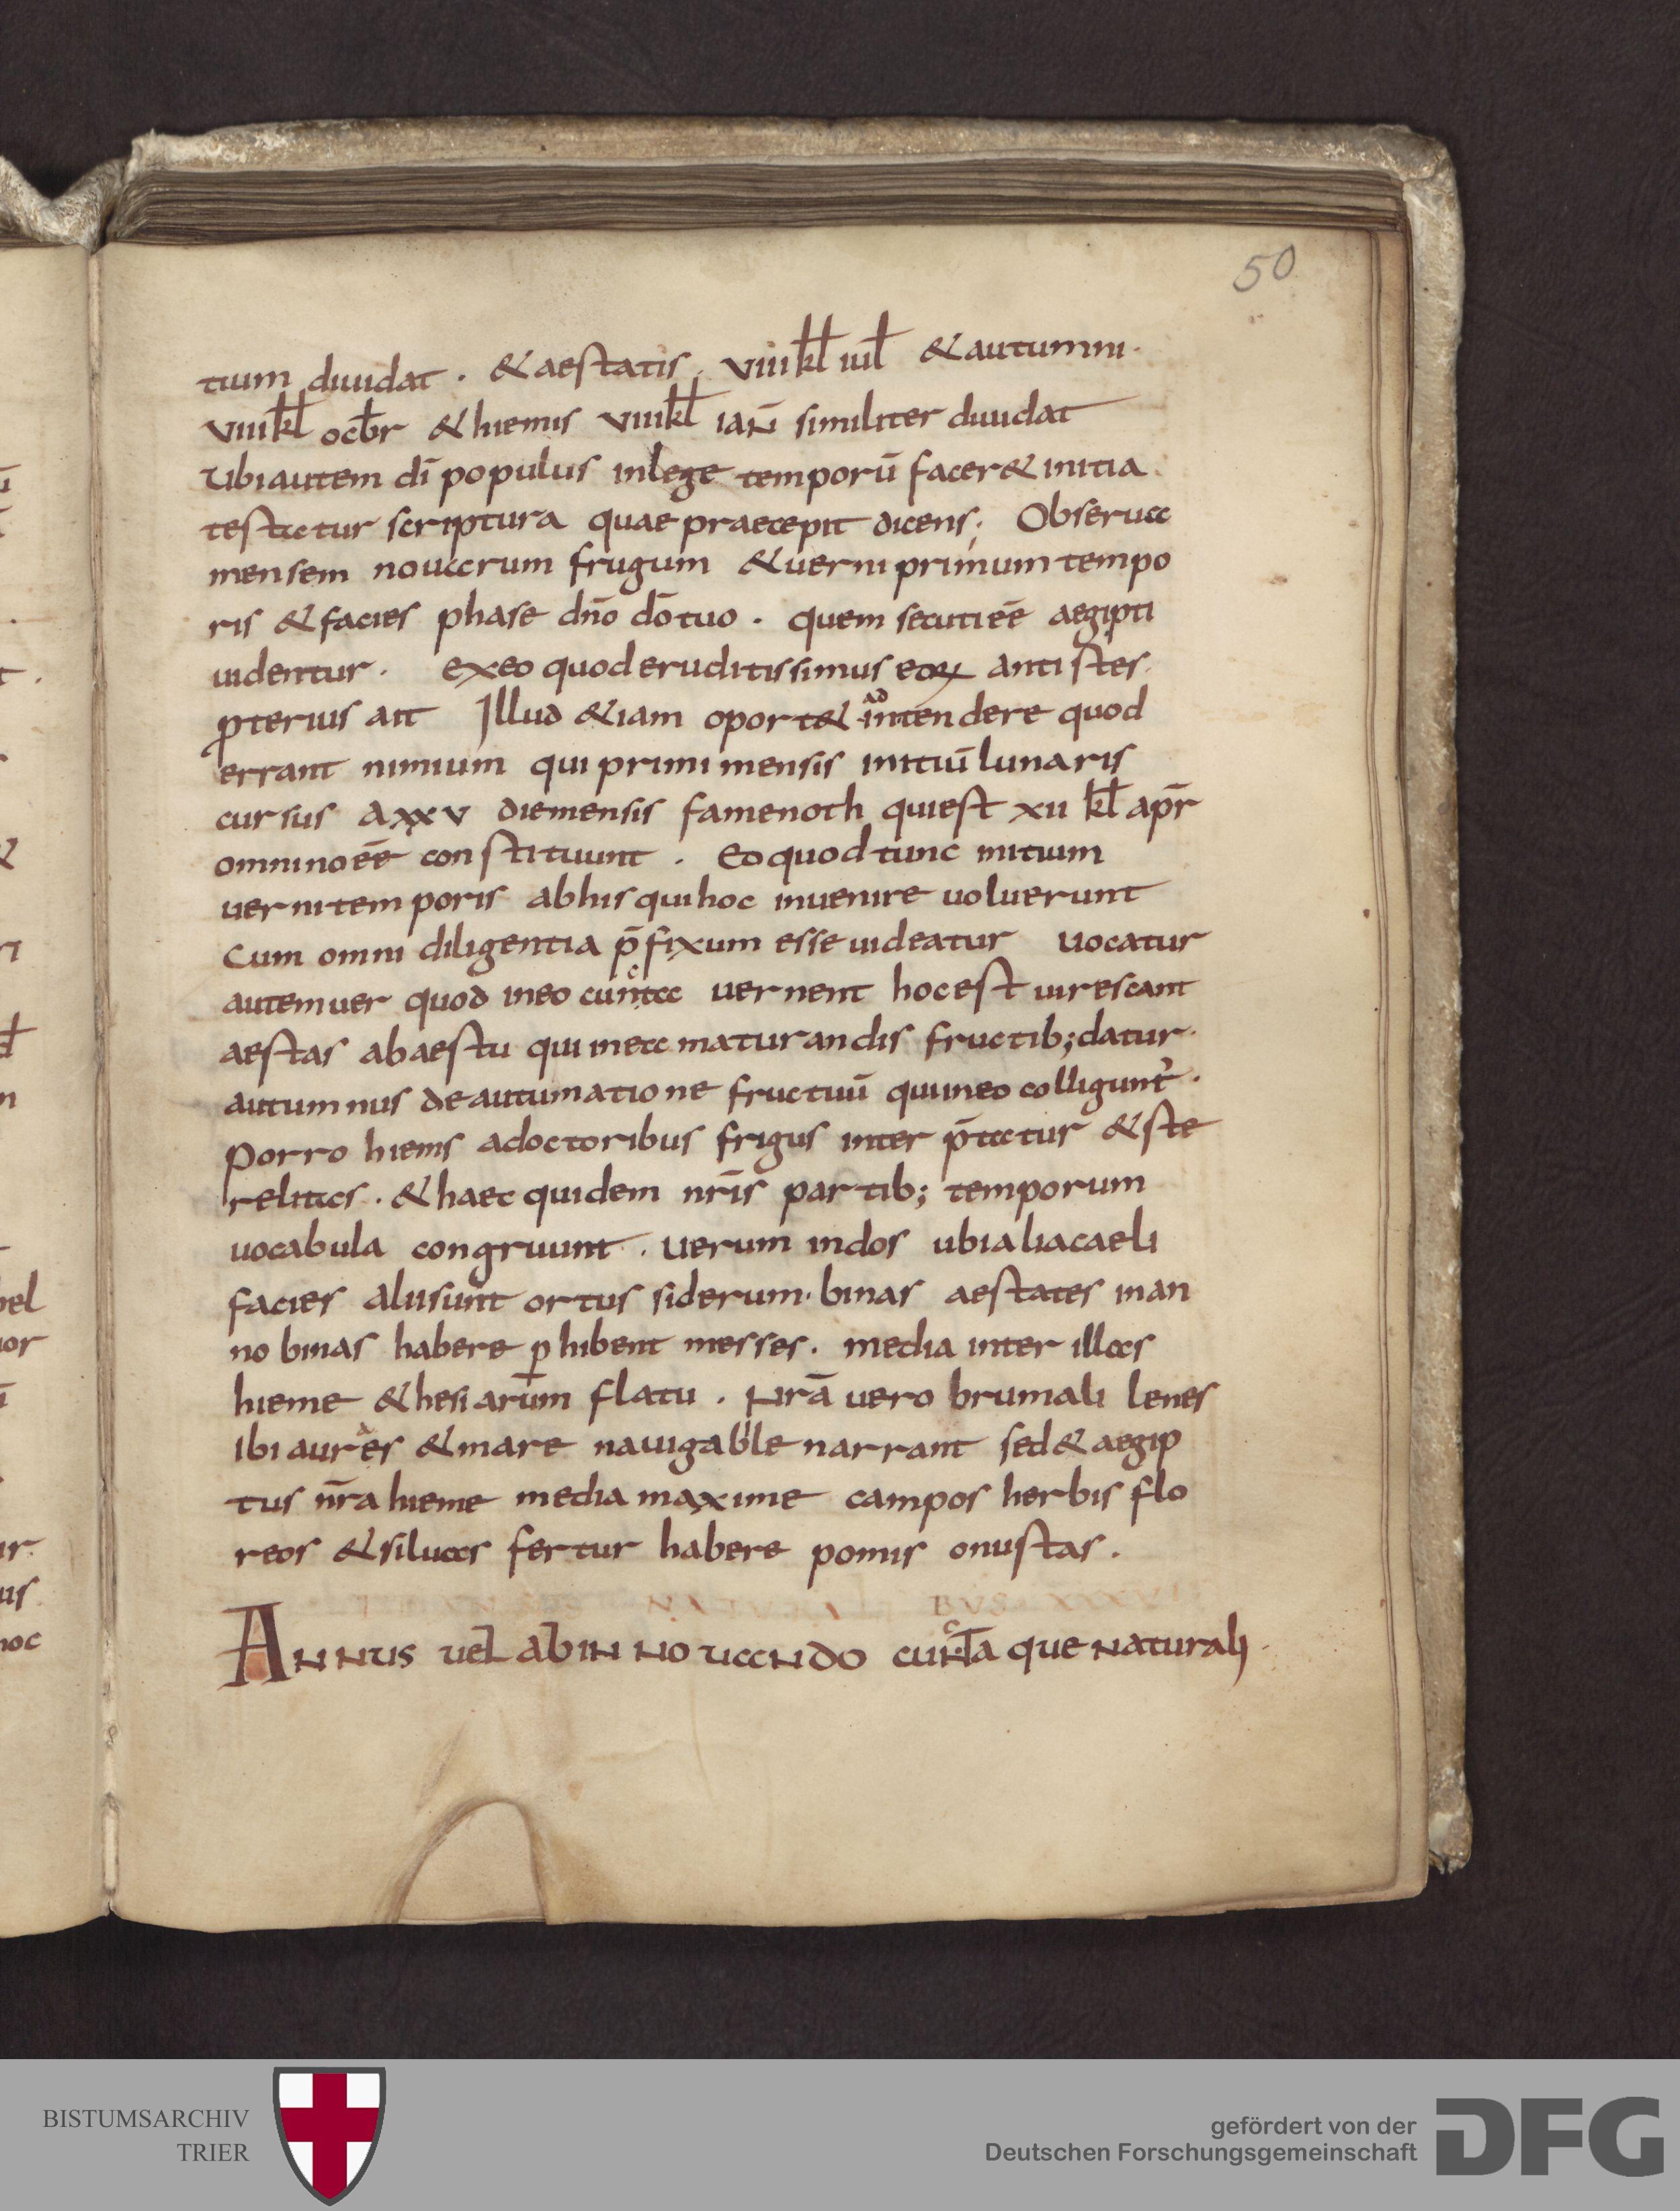 50
tium diuidat . & aestatis . viii kł iuł & autumni .
viii kł octƀr & hiemis viii kł ian̄ similiter diuidat
Ubi autem dī populus in lege temporū facer& initia .
testatur scriptura quae praecepit dicens ; Obserua
mensem nouarum frugum & uerni primum tempo
ris & facies phase dn̄o dō tuo . quem secuti eē aegipti
uidentur . ex eo quod eruditissimus eoꝝ antistes .
ꝓterius ait Illud &iam oport& ad intendere quod
errant nimium qui primi mensis initiū lunaris
cursus a xxv die mensis famenoth qui est xii kł apr̄
omnino eē constituunt . Eo quod tunc initium
uerni temporis ab his qui hoc inuenire uoluerunt
Cum omni diligentia p̄fixum esse uideatur uocatur
autem uer quod in eo cuncta uernent hoc est uirescant
aestas ab aestu qui in ea maturandis fructib; datur .
autumnus de autumatione fructuū qui in eo colligunt᷑ .
Porro hiems a doctoribus frigus inter p̄tatur & ste
relitas . & haec quidem nr̄is partib; temporum
uocabula congruunt . uerum indos ubi alia caeli
facies alii sunt ortus siderum . binas aestates in an
no binas habere ꝑhibent messes . media inter illas
hieme & hesiarum flatu . Nrā uero brumali lenes
ibi aures & mare nauigabile narrant sed & aegip
tus nr̄a hieme media maxime campos herbis flo
reos & siluas fertur habere pomis onustas .
BUS XXXVII
ANNUS uel ab INNOuaNDO cuncta que naturali .
r
BISTUMSARCHIV
TRIER
gefördert von der
Deutschen Forschungsgemeinschaft
DFG